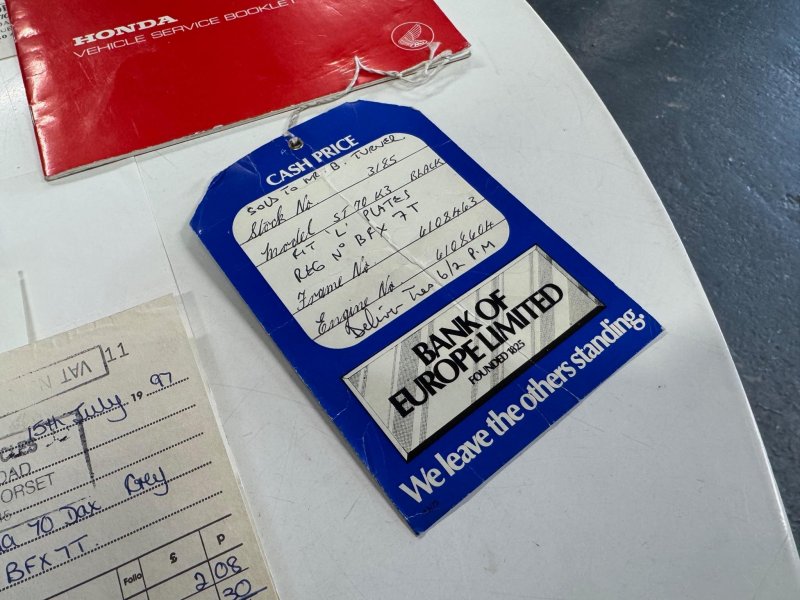 HONDA
VEHICLE SERVICE BOOKLET
CASH PRICE
SOLD TO MR. B. TURNER
Stock No 3185
Model ST 70 K3 BLACK
FIT 'L' PLATES
REG Nº BFX 7T
Frame No. 6108463
Engine No. 6108604
Deliver Tues 6/2 P.M
BANK OF
EUROPE LIMITED
FOUNDED 1825
We leave the others standing.
VAT N 11
15th July 19 97
CLES
OAD
ORSET
70 Dax Grey
BFX 7T
Folio £ p
2 08
30